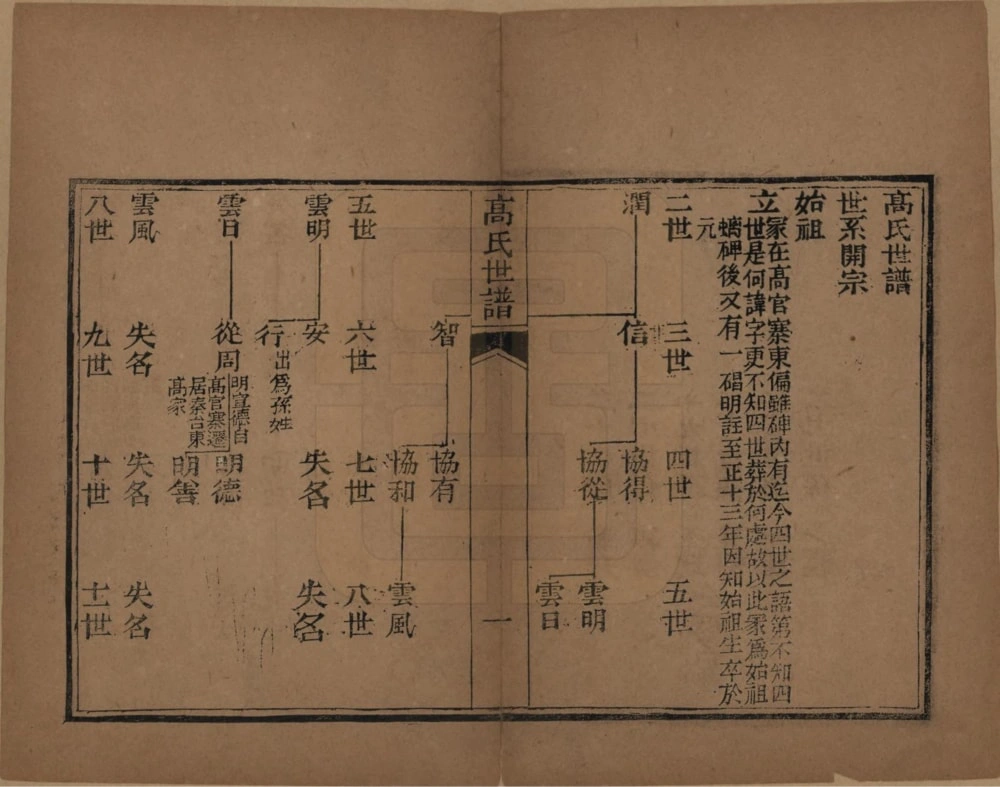 高氏世譜
世系開宗
始祖
立冢在高官寨東偏雖碑內有迄今四世之語第不知四
世是何諱字更不知四世葬於何處故以此冢爲始祖
螭碑後又有一碣明註至正十三年因知始祖生卒於
元
二世 三世 四世 五世
潤 信 協得
協從 雲明
雲日
高氏世譜 一
智 協有
協和 雲風
五世 六世 七世 八世
雲明 安 失名 失名
行出爲孫姓
雲日 從周明宣德自高官寨遷居秦台東高家 明德
明善
雲風 失名 失名 失名
八世 九世 十世 十一世